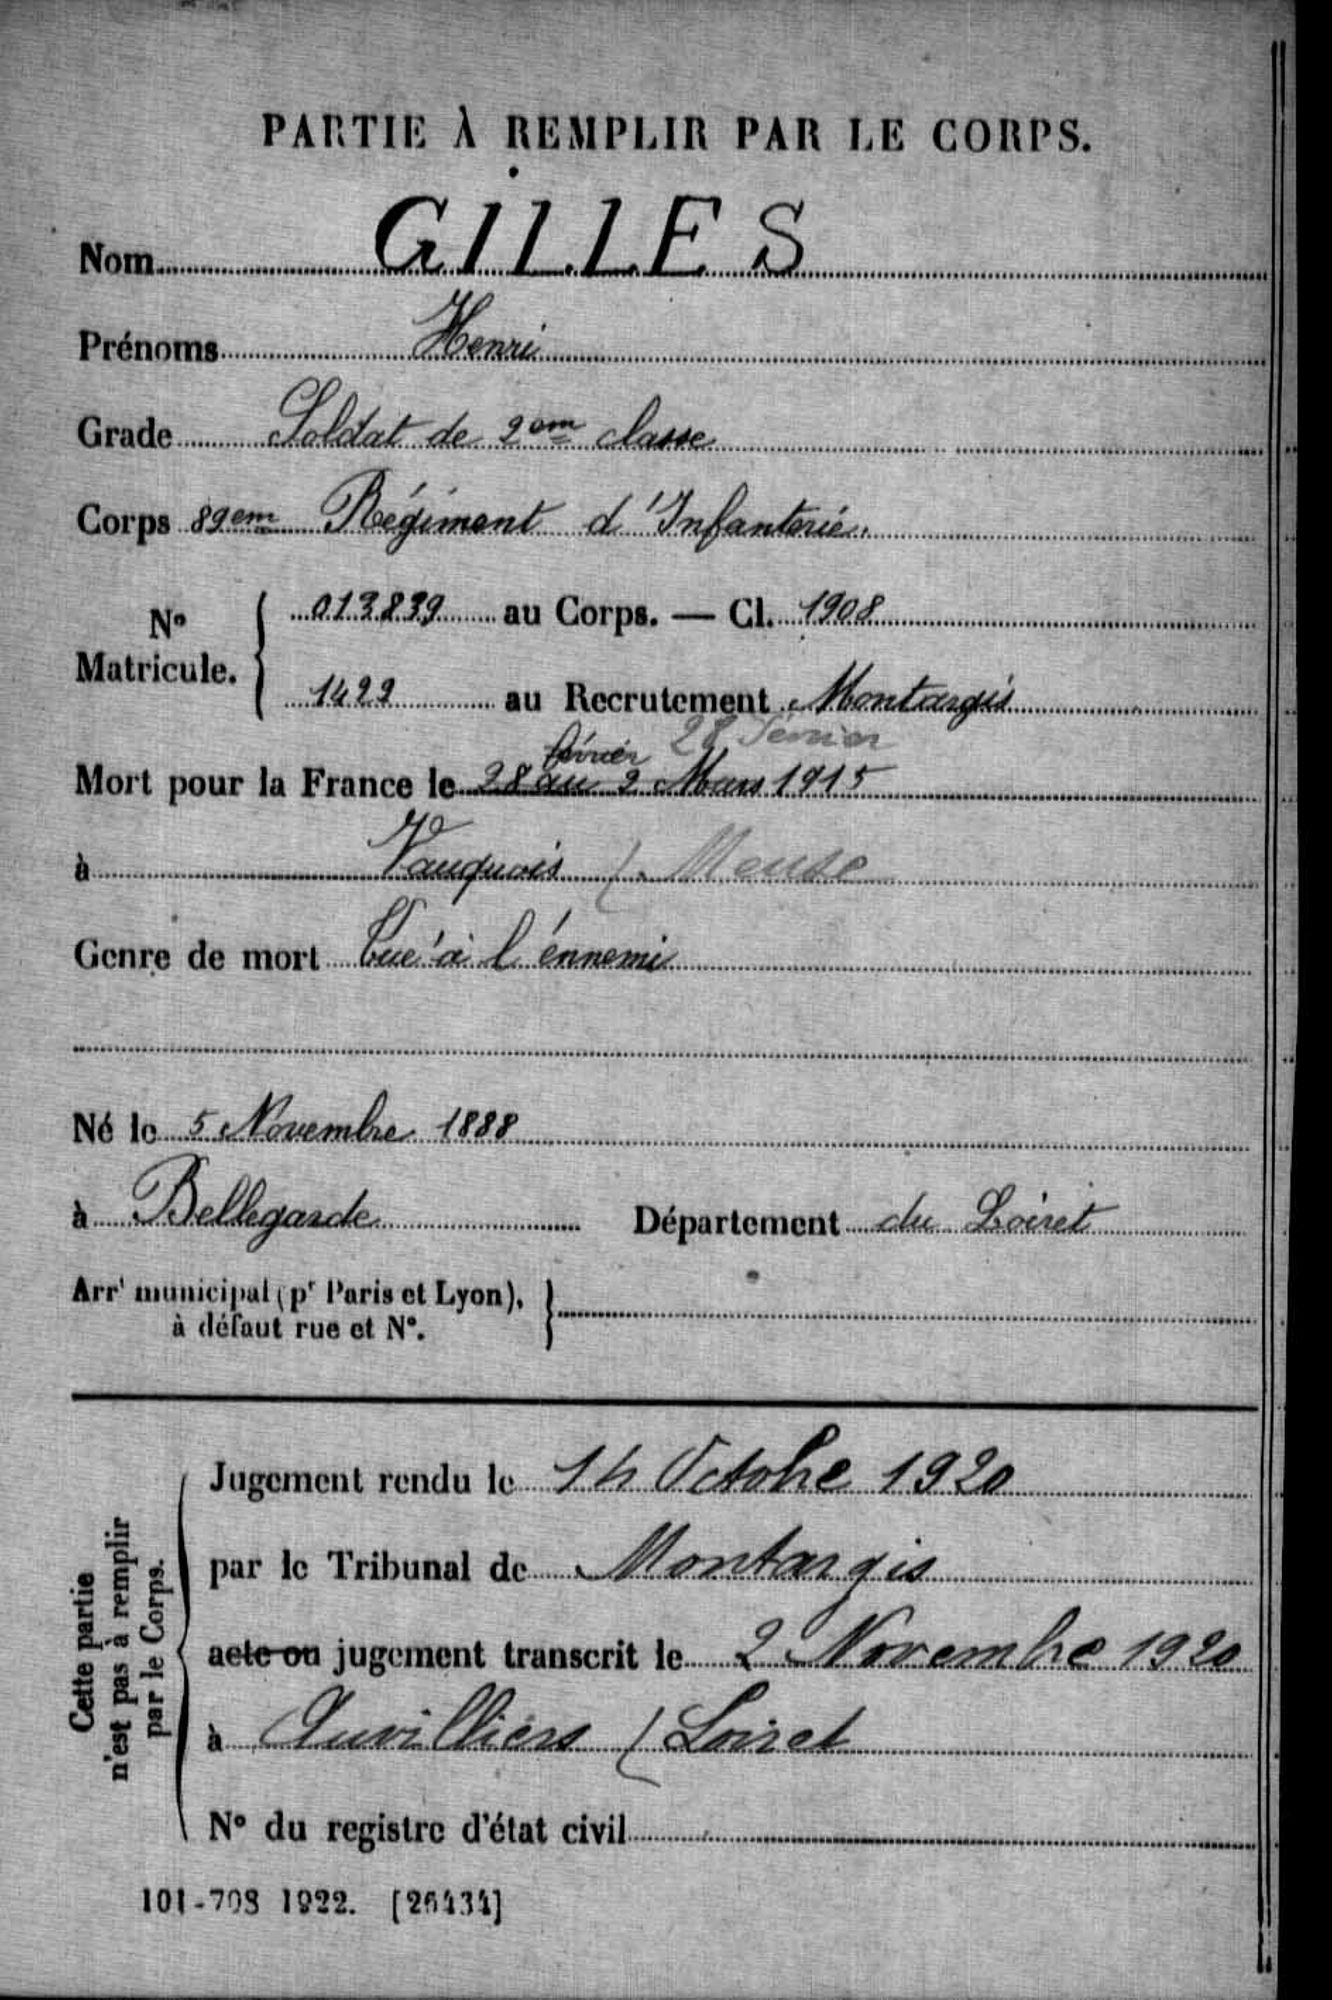 PARTIE À REMPLIR PAR LE CORPS.
Nom GILLES
Prénoms Henri
Grade Soldat de 2em classe
Corps 89em Régiment d'Infanterie.
No Matricule. 013839 au Corps. — Cl. 1908
1422 au Recrutement Montargis
28 Février
février
Mort pour la France le 28 au 2 Mars 1915
à Vauquois (Meuse
Genre de mort Tué à l'énnemi
Né le 5 Novembre 1888
à Bellegarde Département du Loiret
Arrt municipal (pr Paris et Lyon),
à défaut rue et N°.
Cette partie
n'est pas à remplir
par le Corps.
Jugement rendu le 14 Octobre 1920
par le Tribunal de Montargis
acte ou jugement transcrit le 2 Novembre 1920
à Auvilliers (Loiret
N° du registre d'état civil
101-708 1922. [26434]